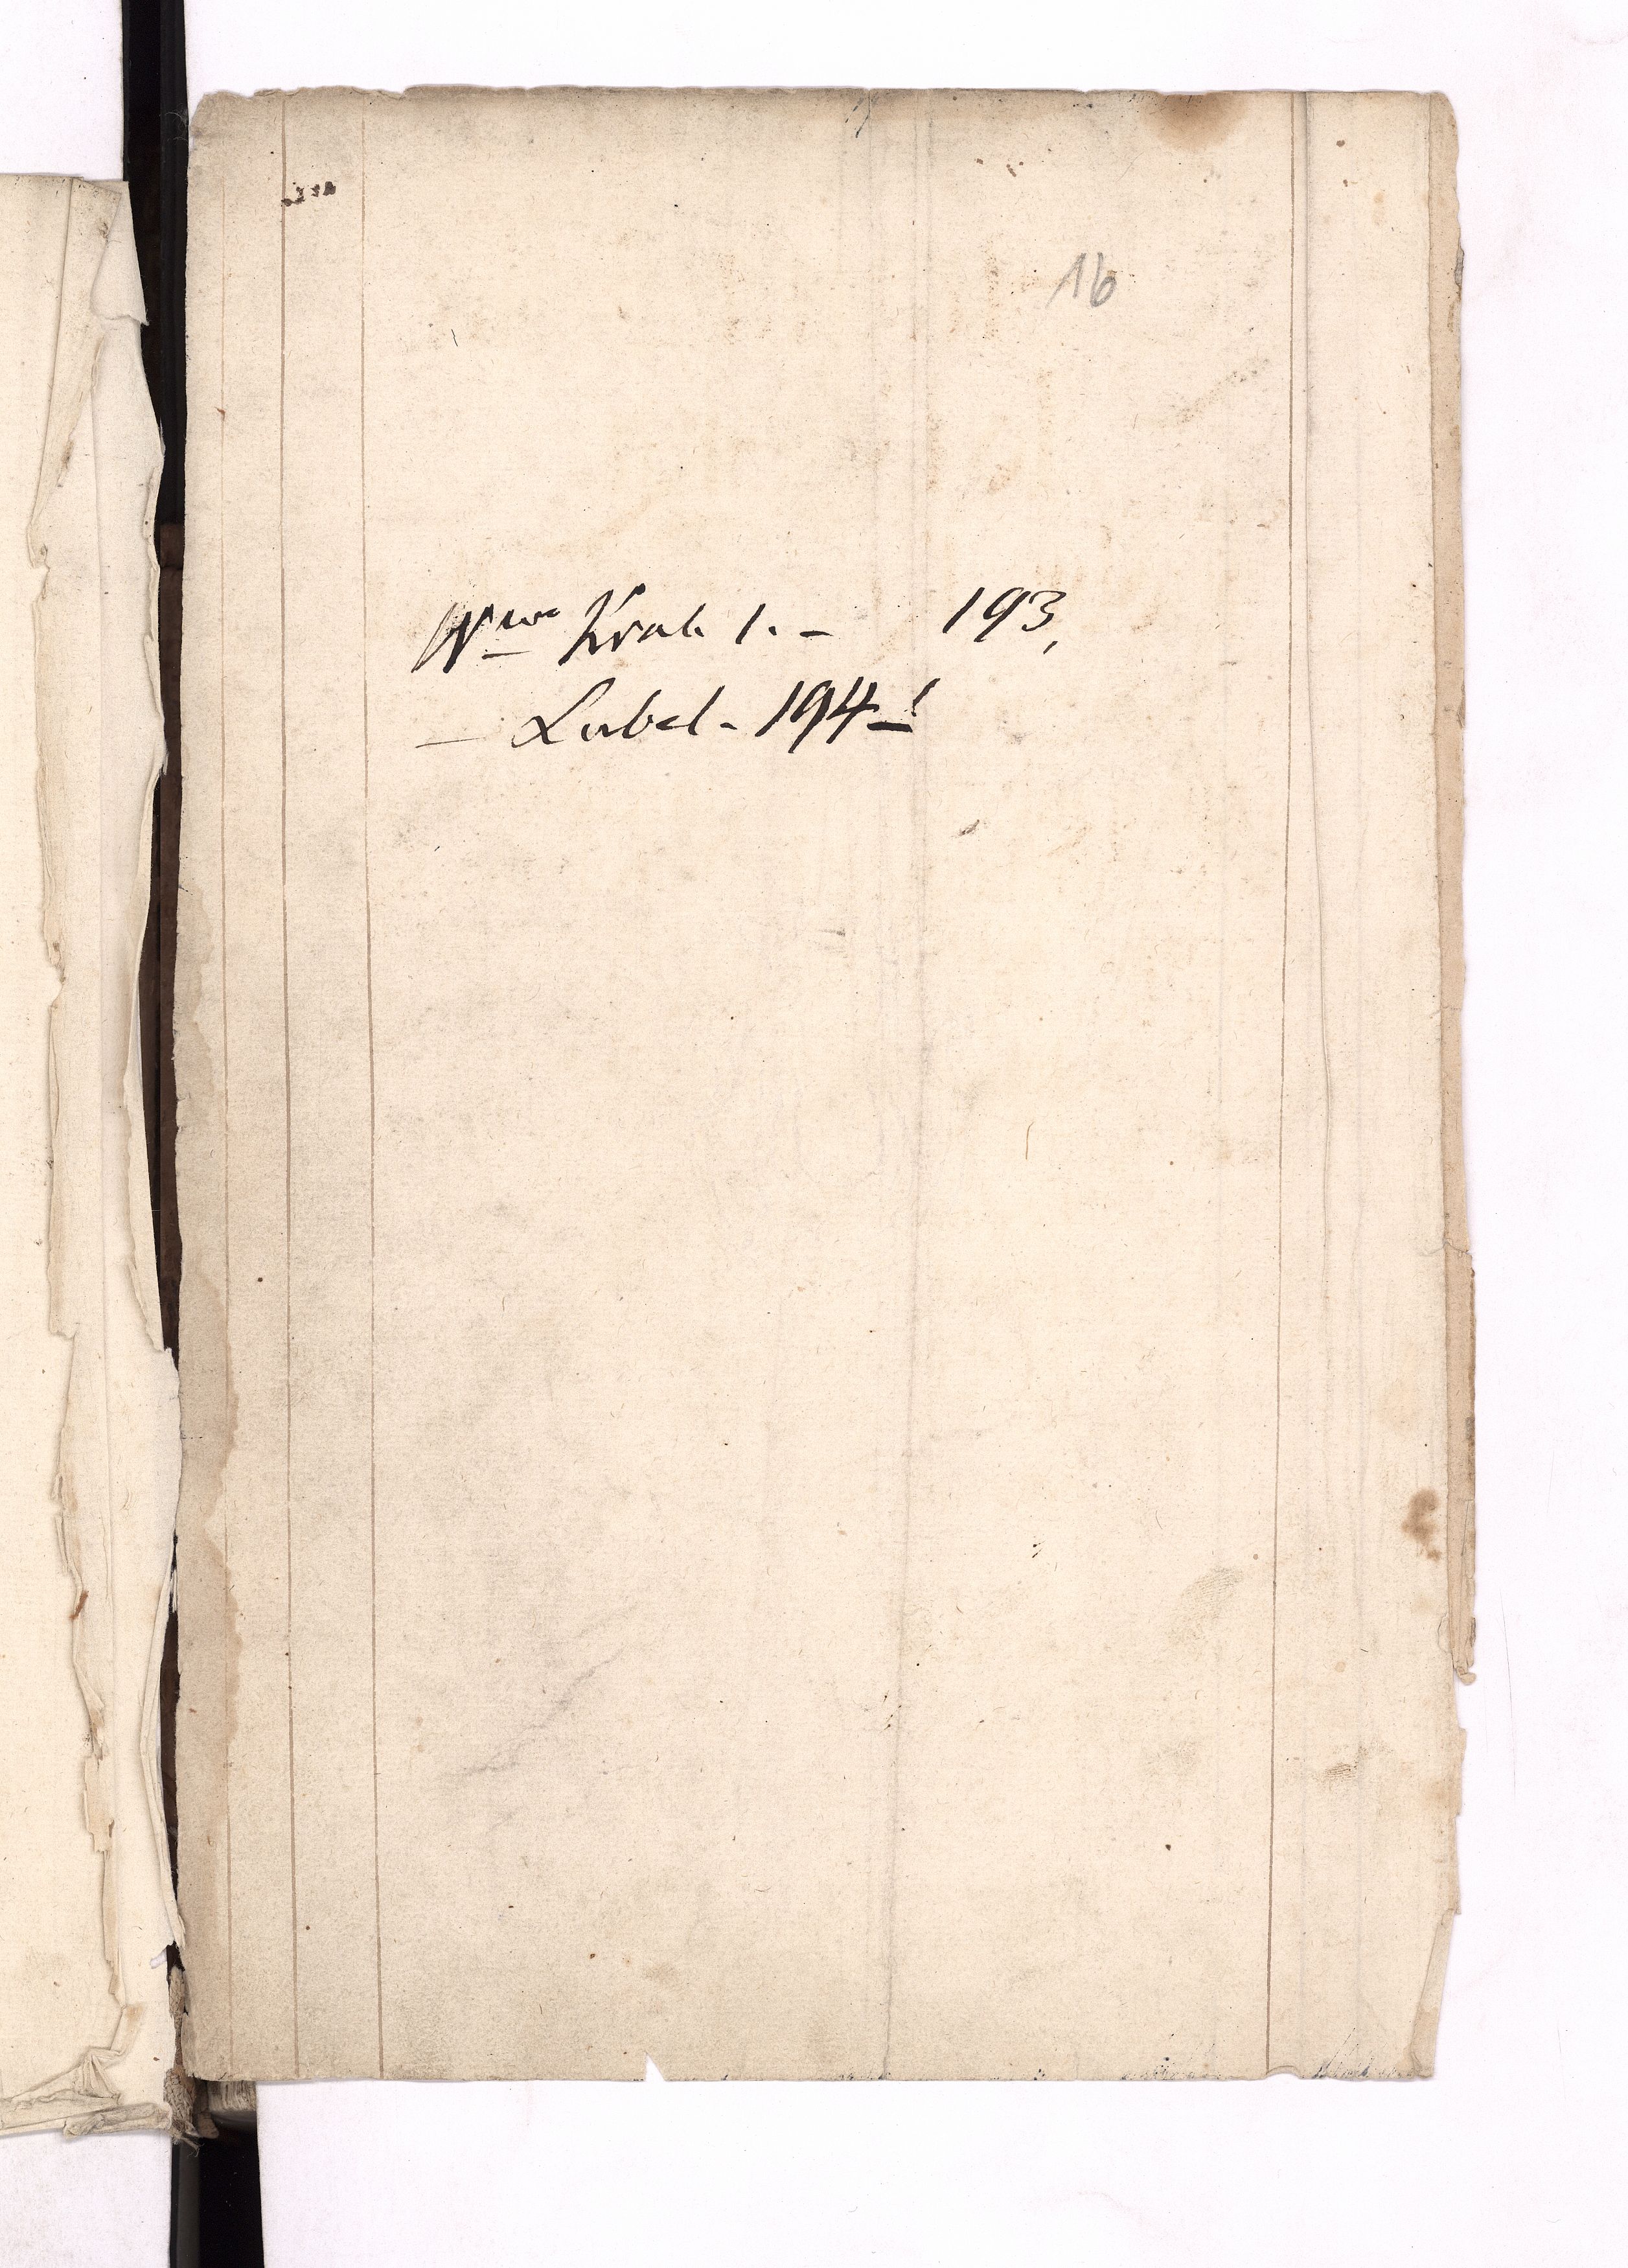 16
Wwe Krab 1. – 193,
– Label - 194 –!